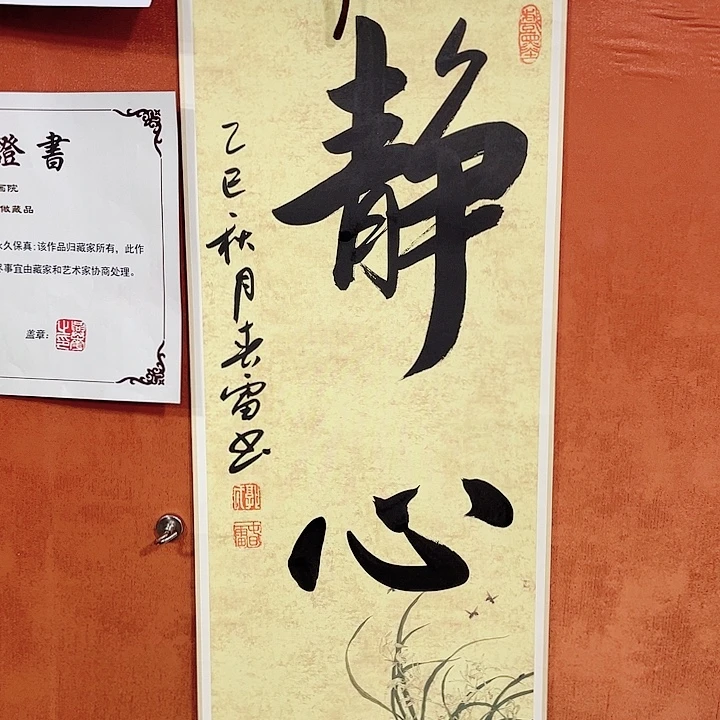 静心
乙巳秋月春雷书
證書
画院
做藏品
永久保真;该作品归藏家所有，此作
事宜由藏家和艺术家协商处理。
盖章：
春雷